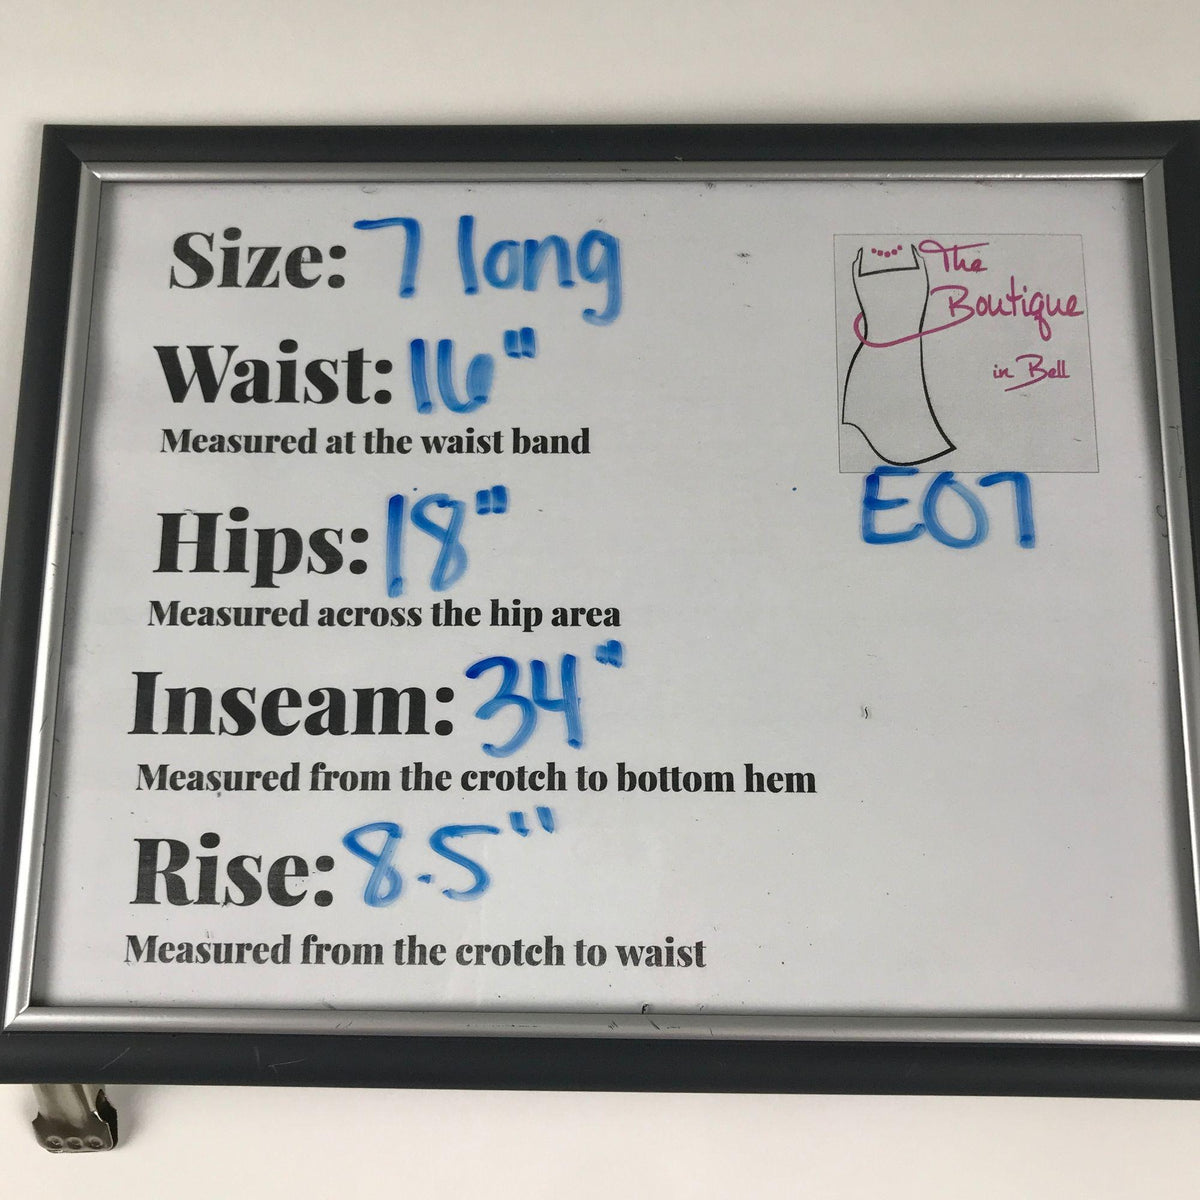 Size: 7 long
Waist: 16"
Measured at the waist band
Hips: 18"
Measured across the hip area
Inseam: 34"
Measured from the crotch to bottom hem
Rise: 8.5"
Measured from the crotch to waist
The
Boutique
in Bell
E07